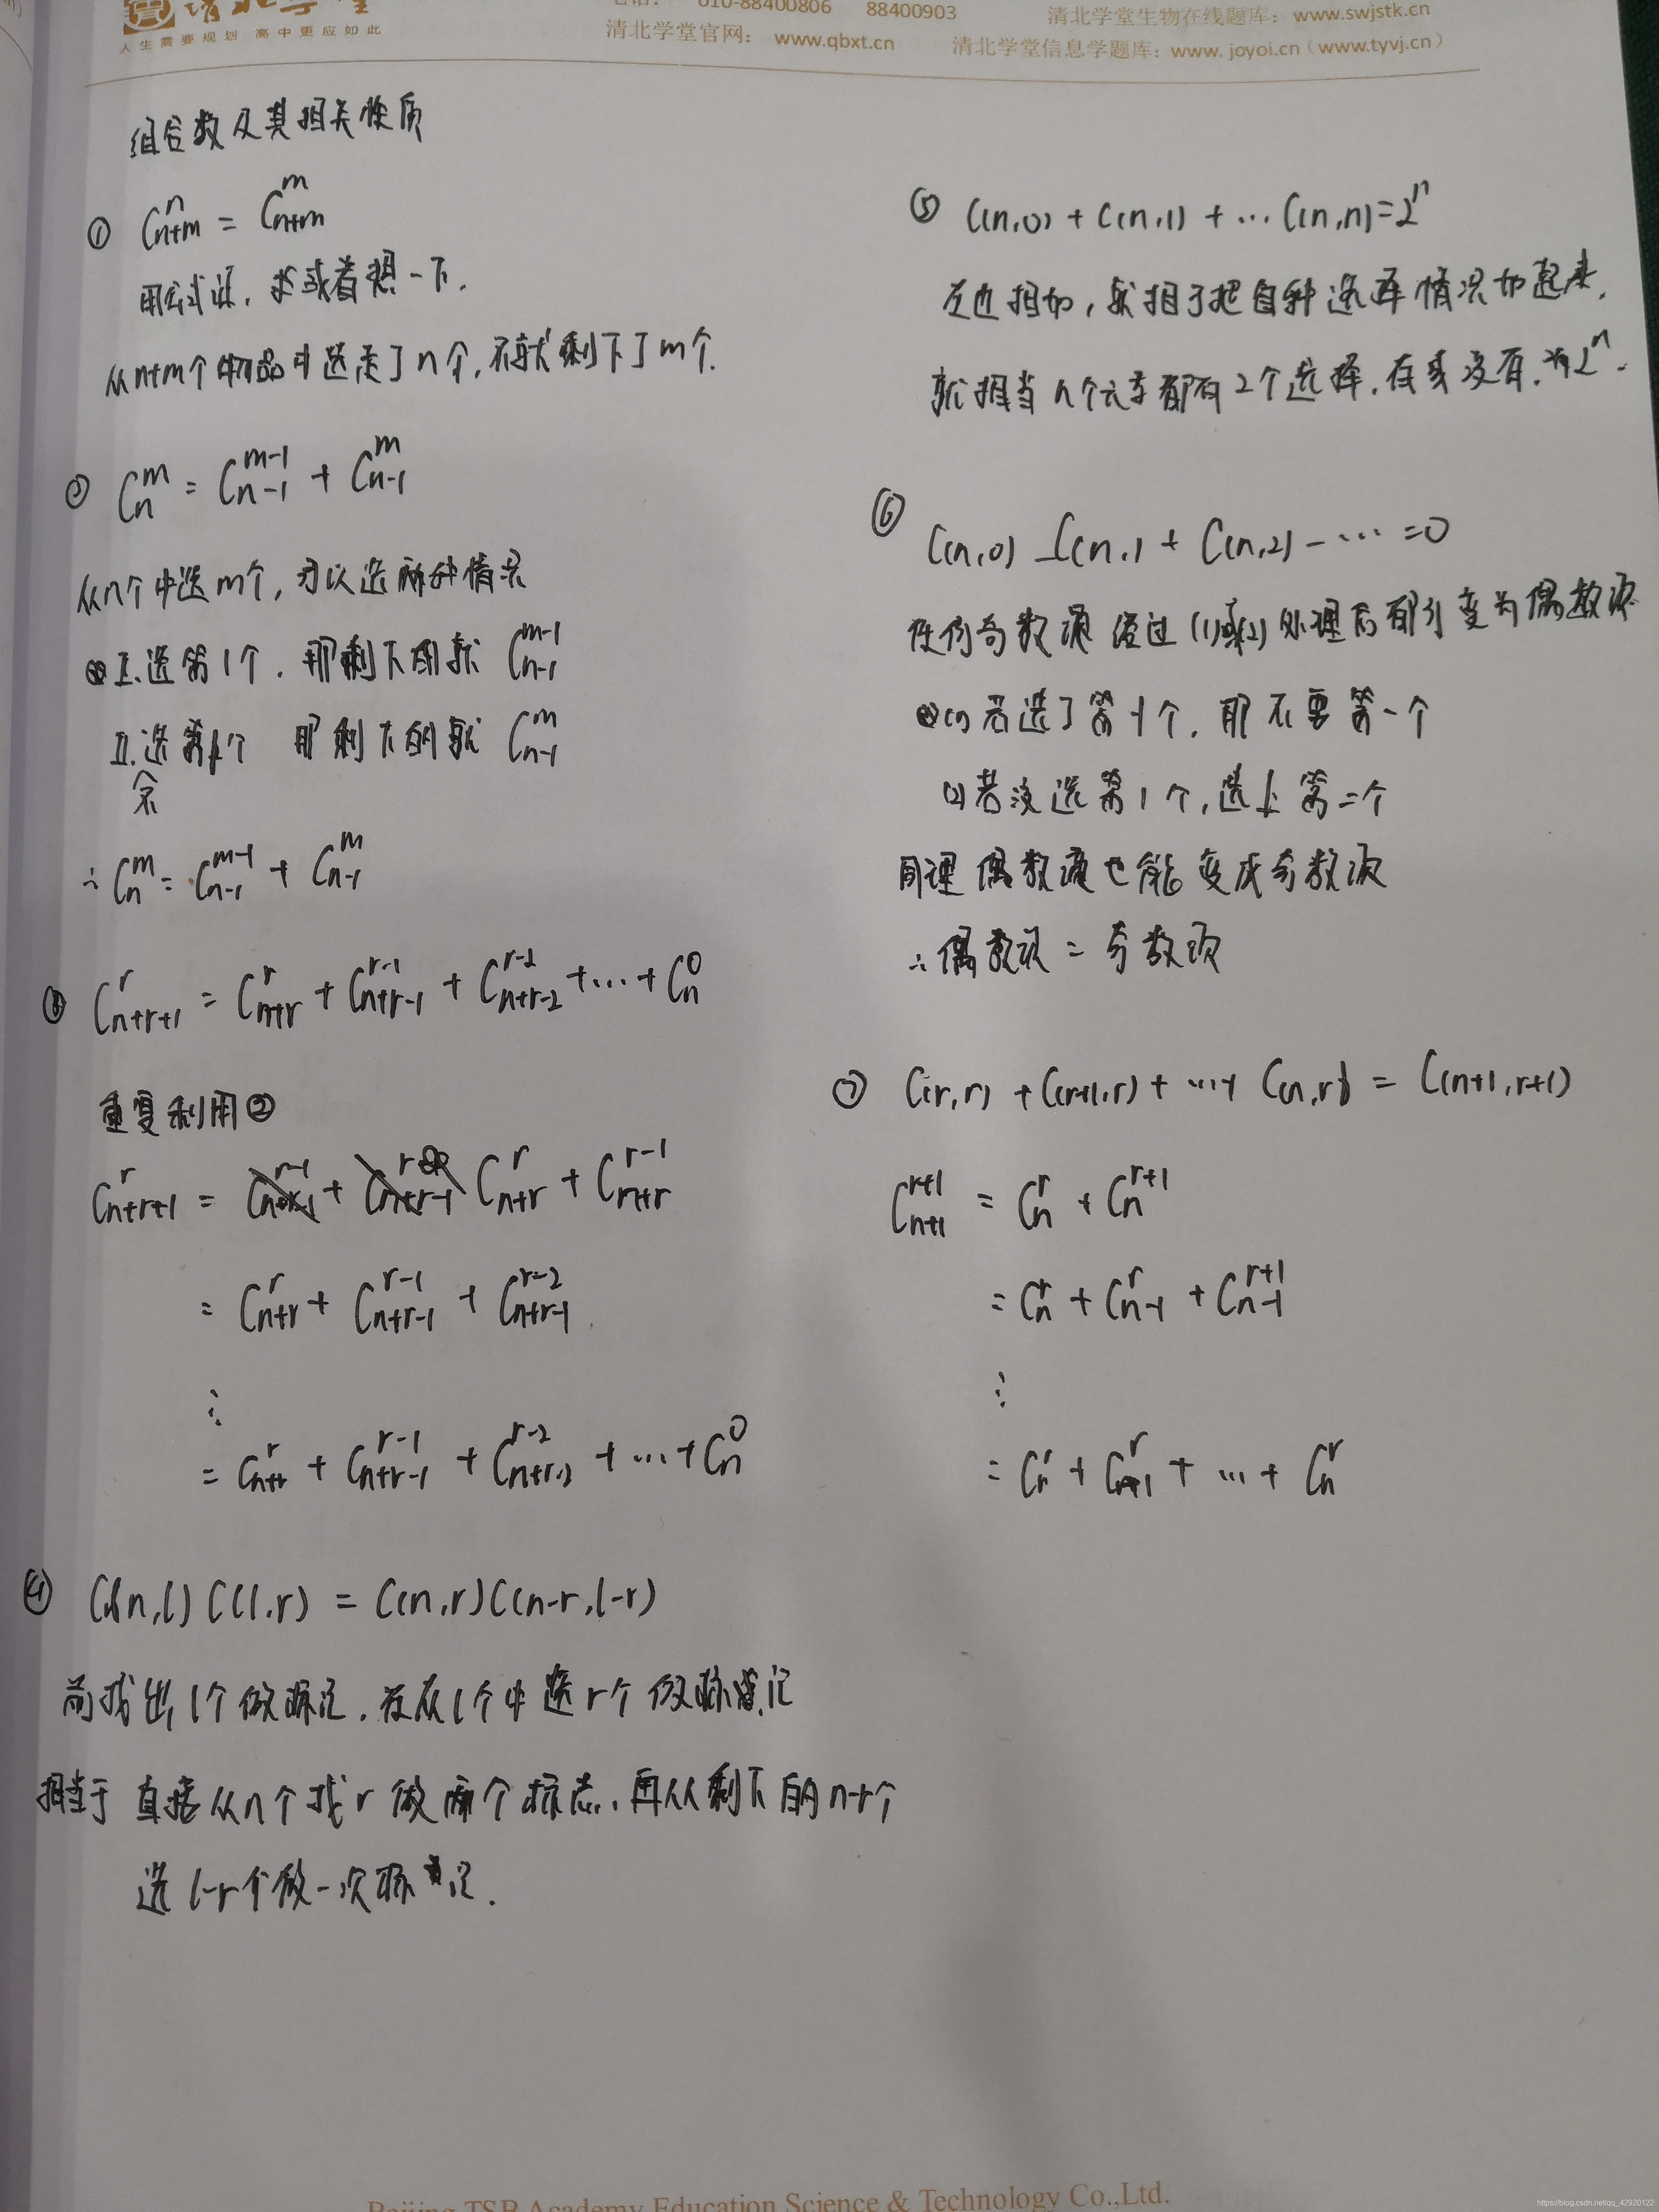 清北学堂
人生需要规划 高中更应如此
电话: 010-88400806 88400903
清北学堂官网: www.qbxt.cn
清北学堂生物在线题库: www.swjstk.cn
清北学堂信息学题库: www.joyoi.cn (www.tyvj.cn)
组合数及其相关性质
① C_{n+m}^{n} = C_{n+m}^{m}
用公式证, 或者想一下.
从n+m个物品中选走了n个, 不就剩下了m个.
② C_n^m = C_{n-1}^{m-1} + C_{n-1}^m
从n个中选m个, 可以选两种情况
I.选第1个. 那剩下的就 C_{n-1}^{m-1}
II.不选第1个 那剩下的就 C_{n-1}^m
∴ C_n^m = C_{n-1}^{m-1} + C_{n-1}^m
③ C_{n+r+1}^r = C_{n+r}^r + C_{n+r-1}^{r-1} + C_{n+r-2}^{r-2} + ... + C_n^0
重复利用②
C_{n+r+1}^r = C_{n+r}^r + C_{n+r}^{r-1}
= C_{n+r}^r + C_{n+r-1}^{r-1} + C_{n+r-1}^{r-2}
⋮
= C_{n+r}^r + C_{n+r-1}^{r-1} + C_{n+r-2}^{r-2} + ... + C_n^0
④ C(n,l)C(l,r) = C(n,r)C(n-r,l-r)
前找出l个做标记. 在从l个中选r个做标记
相当于直接从n个找r做两个标志. 再从剩下的n-r个
选l-r个做一次标记.
⑤ C(n,0) + C(n,1) + ... C(n,n) = 2^n
左边相加, 就相于把各种选择情况加起来.
就相当n个元素都有2个选择. 有或没有. 为2^n.
⑥ C(n,0) - C(n,1) + C(n,2) - ... = 0
任何奇数项经过(1)或(2)处理后都可变为偶数项
(1)若选了第1个. 那不要第一个
(2)若没选第1个, 选上第一个
同理偶数项也能变成奇数项
∴偶数项 = 奇数项
⑦ C(r,r) + C(r+1,r) + ... + C(n,r) = C(n+1,r+1)
C_{n+1}^{r+1} = C_n^r + C_n^{r+1}
= C_n^r + C_{n-1}^r + C_{n-1}^{r+1}
⋮
= C_r^r + C_{r+1}^r + ... + C_n^r
Beijing TSB Academy Education Science & Technology Co.,Ltd.
https://blog.csdn.net/qq_42920122